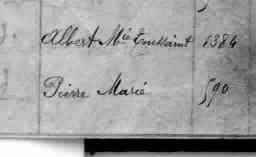 Albert Mie Toussaint 1384
Pierre Marie 590